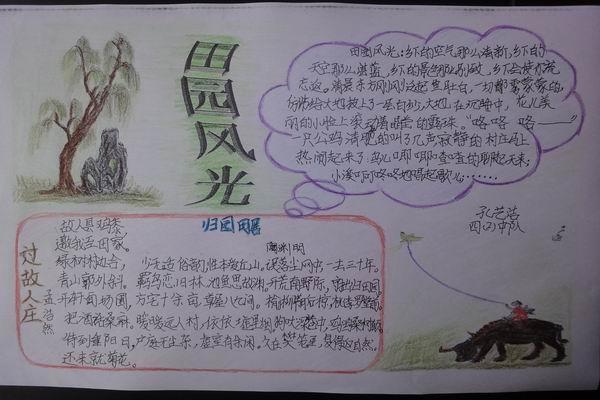 田园风光
田园风光：乡下的空气那么清新，乡下的
天空那么湛蓝，乡下的景色那么别致，乡下会使你流
忘返。清晨东方刚刚泛起鱼肚白，一切都雾蒙蒙的
仿佛给大地披上了一层白纱，大地在沉睡中，花儿美
丽的小脸上滚动着晶莹的露珠。“咯咯 咯——”
一只公鸡清脆的叫了几声寂静的村庄马上
热闹起来了。鸟儿唧唧喳喳的聊起天来；
小溪叮叮咚咚地唱起歌儿……
孔艺浩
四(2)中队
过故人庄
孟浩然
故人具鸡黍，
邀我至田家。
绿树村边合，
青山郭外斜。
开轩面场圃
把酒话桑麻。
待到重阳日，
还来就菊花。
归园田居
陶渊明
少无适俗韵，性本爱丘山。误落尘网中，一去三十年。
羁鸟恋旧林，池鱼思故渊。开荒南野际，守拙归园田
方宅十余亩，草屋八九间。榆柳荫后檐，桃李罗堂前。
暧暧远人村，依依墟里烟。狗吠深巷中，鸡鸣桑树颠。
户庭无尘杂，虚室有余闲。久在樊笼里，复得返自然。